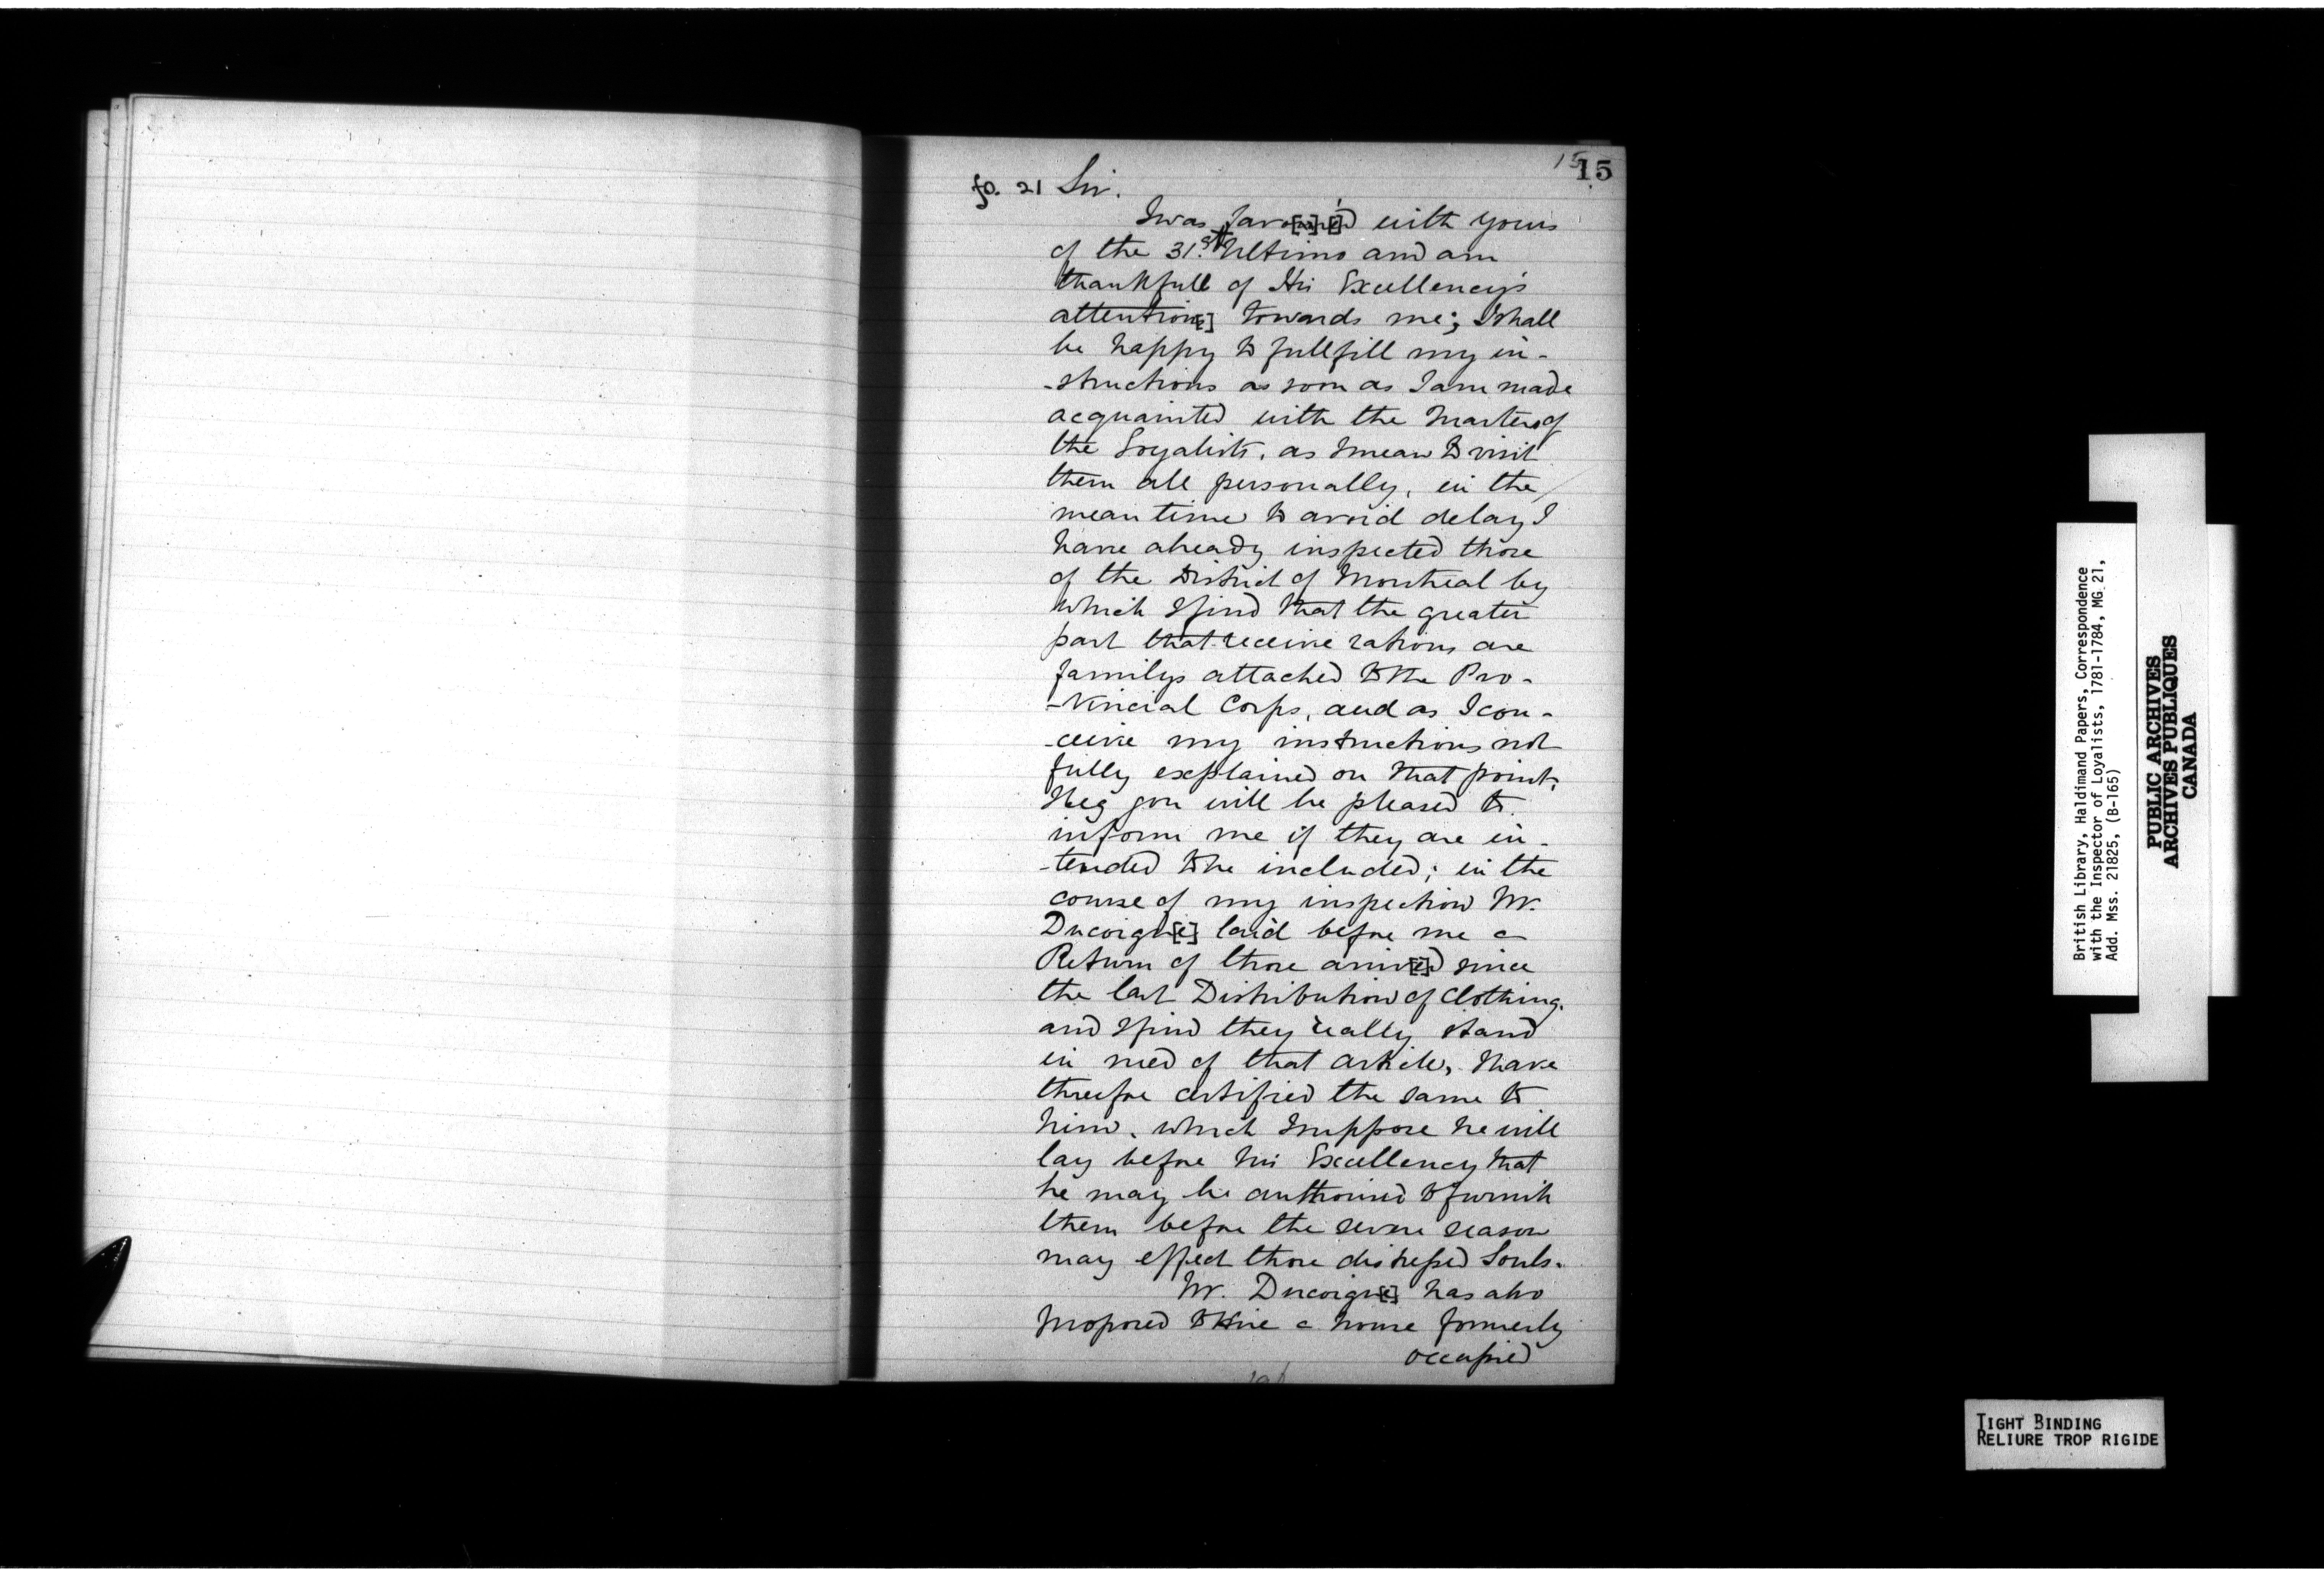 15
15
fo. 21 Sir.
I was favo[u]r[e]'d with yours
of the 31.st Ultimo and am
thankfull of His Excellency's
attention[s] towards me; I shall
be happy to fullfill my in-
-structions as soon as I am made
acquainted with the Musters of
the Loyalists, as I mean to visit
them all personally, in the
mean time to avoid delay I
have already inspected those
of the District of Montreal by
which I find that the greater
part that receive rations are
familys attached to the Pro-
-Vincial Corps, and as I con-
-ceive my instructions not
fully explained on that point,
I beg you will be pleased to
inform me if they are in-
-tended to be included; in the
course of my inspection Mr.
Ducoign[e] laid before me a
Return of those arriv[e]d since
the last Distribution of Clothing.
and I find they really stand
in need of that article, I have
therefore certified the same to
him, which I suppose he will
lay before his Excellency that
he may be authorised to furnish
them before the severe season
may effect those distressed Souls.
Mr. Ducoign[e] has also
proposed to Hire a house formerly
occupied
British Library, Haldimand Papers, Correspondence
with the Inspector of Loyalists, 1781-1784, MG 21,
Add. Mss. 21825, (B-165)
PUBLIC ARCHIVES
ARCHIVES PUBLIQUES
CANADA
TIGHT BINDING
RELIURE TROP RIGIDE